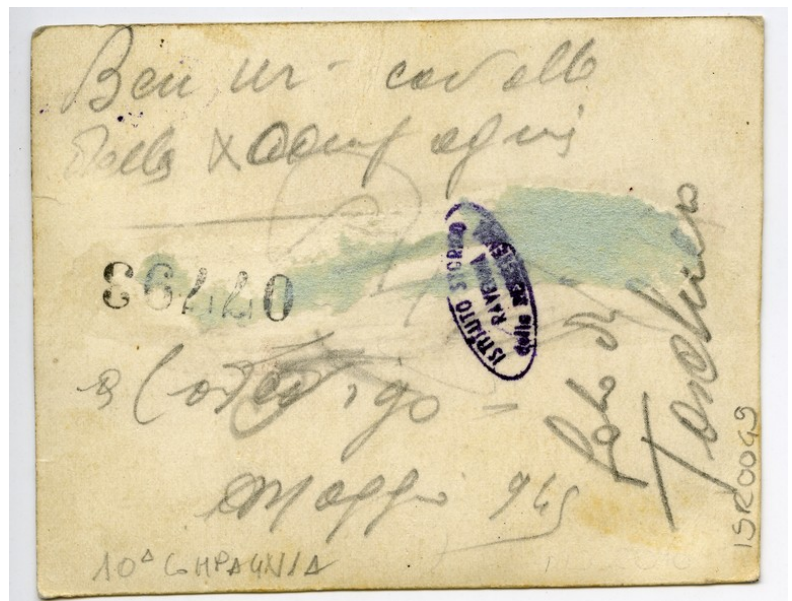 Ben Ur - cavallo
della X Compagnia
ISTITUTO STORICO
RAVENNA
della RESISTENZA
a Codevigo =
Maggio 945
Foto di
10ª COMPAGNIA
ISR0049